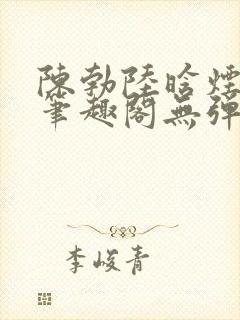 陳勃陸晗煙
筆趣閣無彈
李峻青